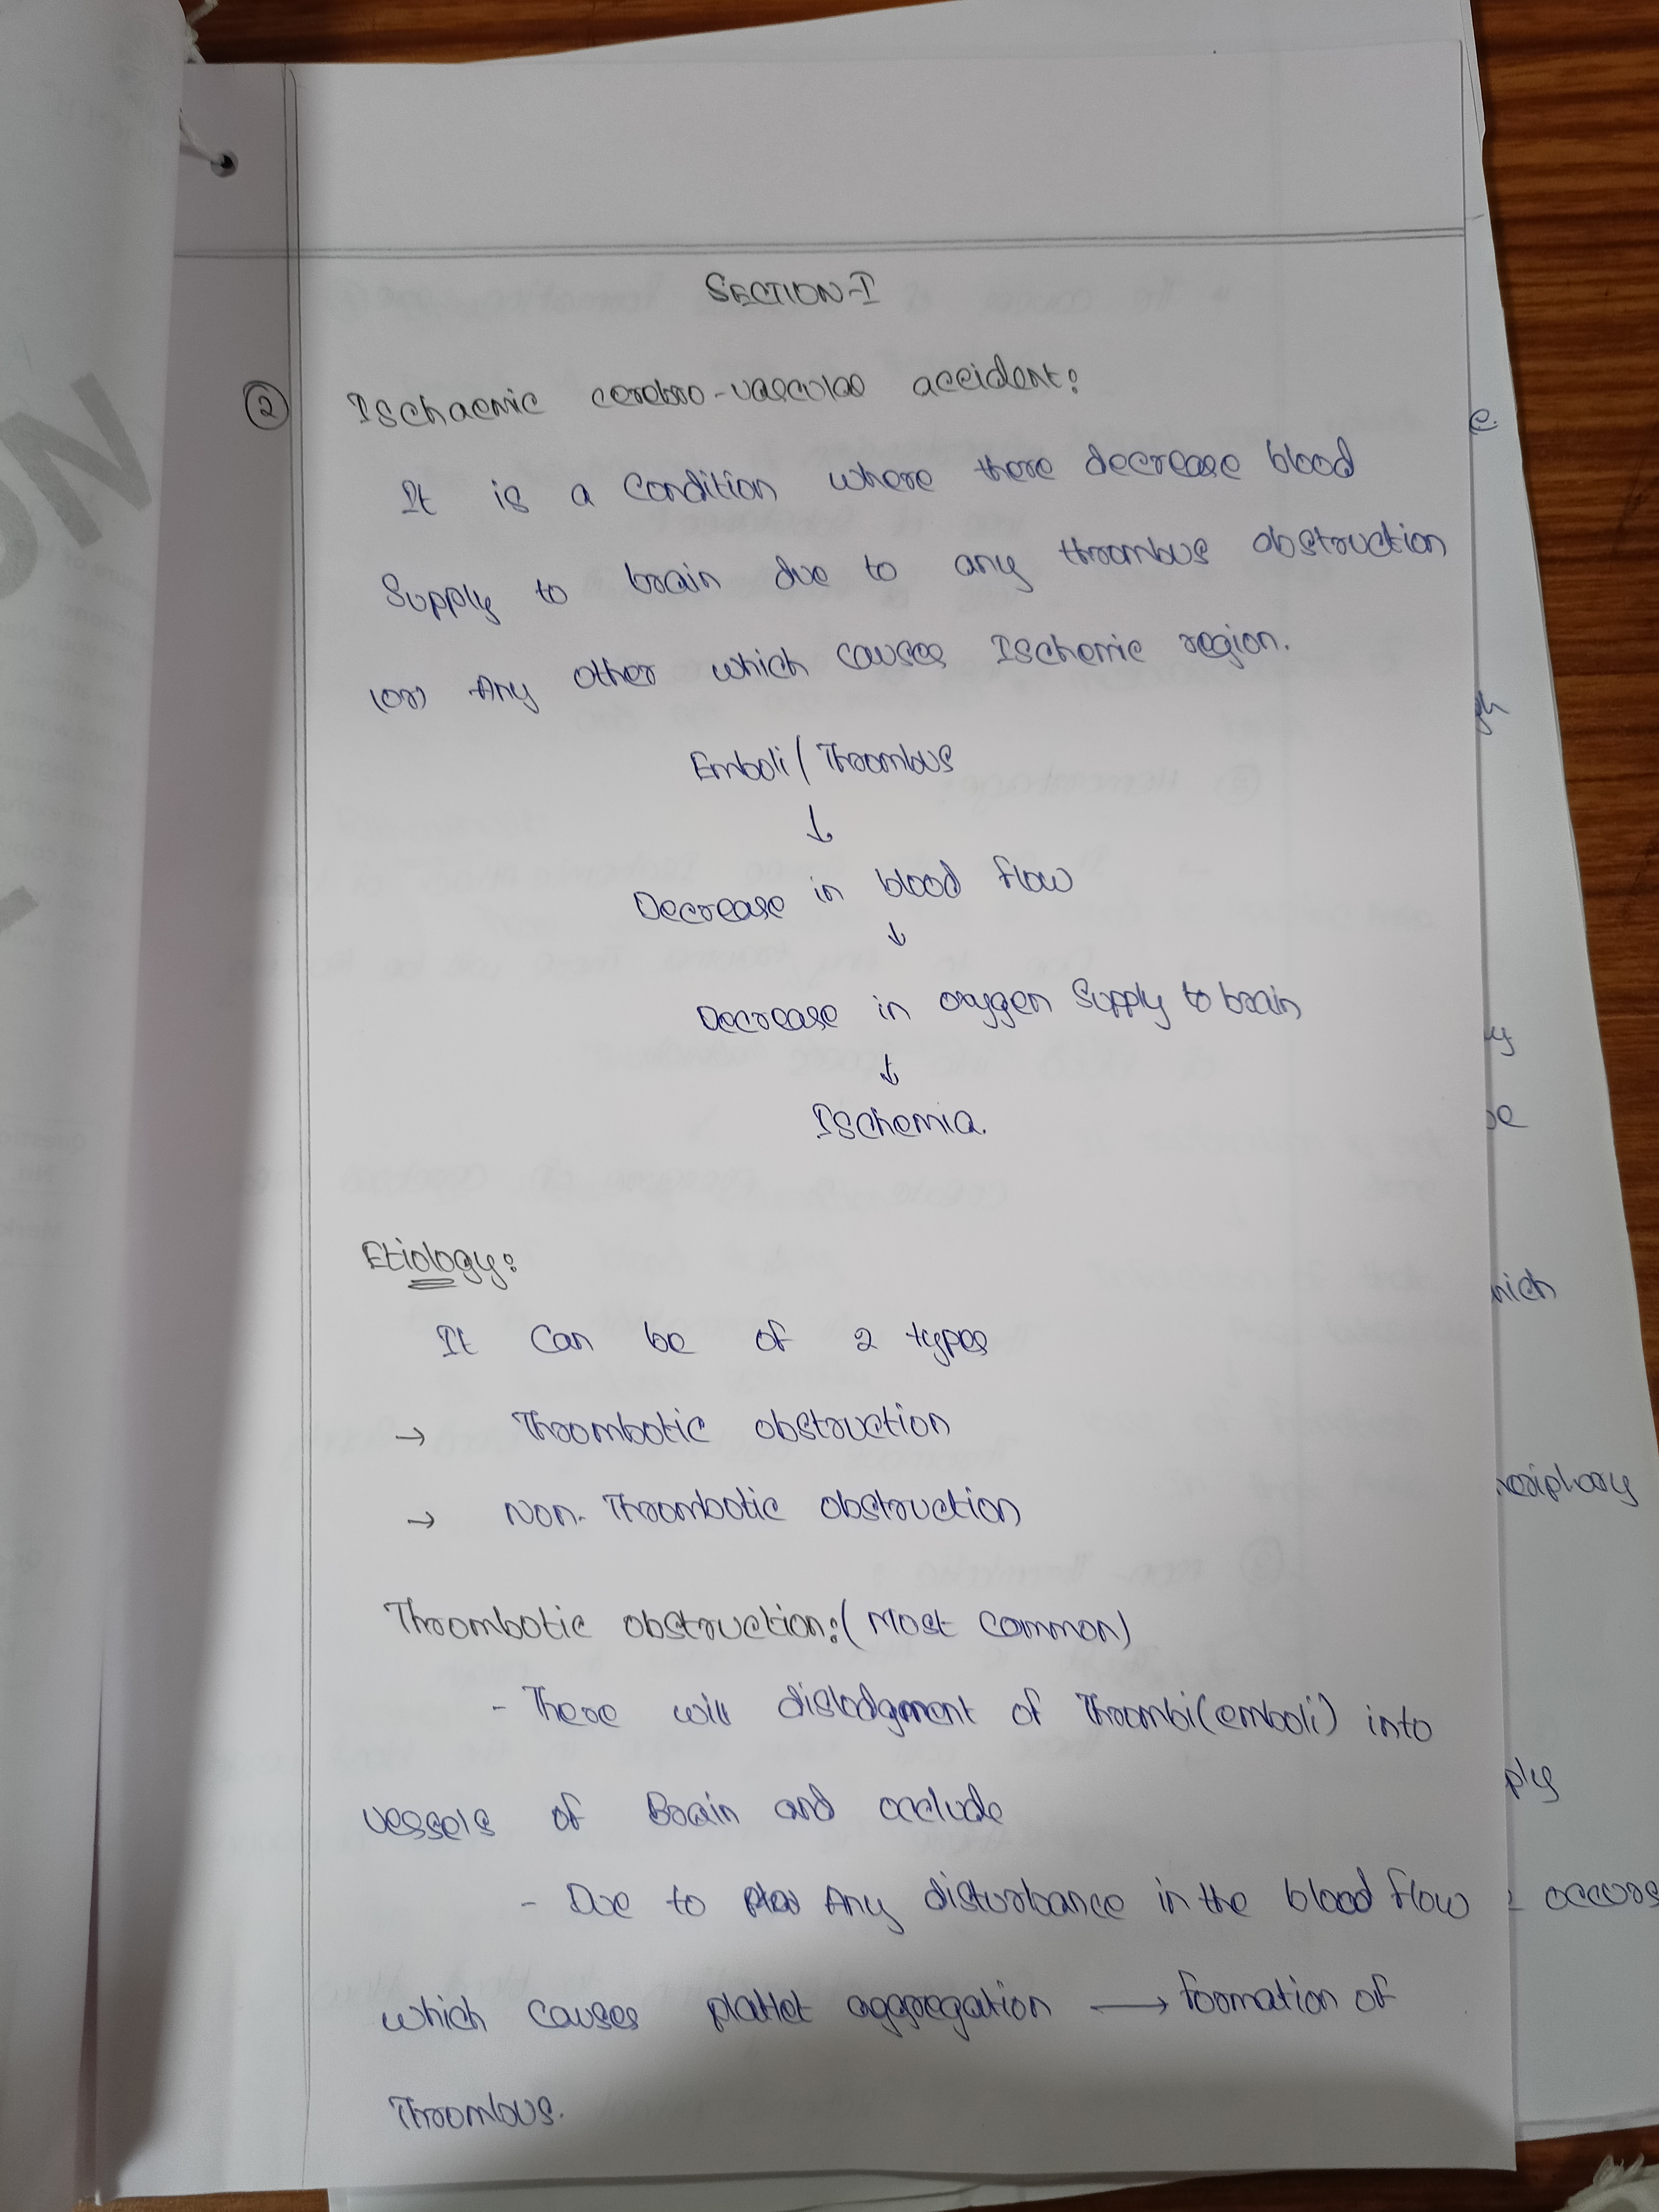 SECTION-I
② Ischaemic cerebro-vascular accident:
It is a condition where there decrease blood
Supply to brain due to any thrombus obstruction
(or) Any other which causes Ischemic region.
Emboli/Thrombus
↓
Decrease in blood flow
↓
Decrease in oxygen Supply to brain
↓
Ischemia.
Etiology:
It can be of 2 types
→ Thrombotic obstruction
→ Non-Thrombotic obstruction
Thrombotic obstruction:(Most Common)
- There will dislodgment of Thrombi(emboli) into
vessels of Brain and occlude
- Due to Any disturbance in the blood flow
which causes platlet aggregation → formation of
Thrombus.
occurs